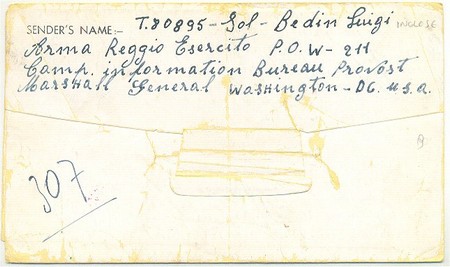 SENDER'S NAME:- T.80895-Sol- Bedin Luigi INCLOSE
Arma Reggio Esercito P.O.W- 211
Camp. information Bureau Provost
Marshall General Washington- DC. U.S.A.
B
307